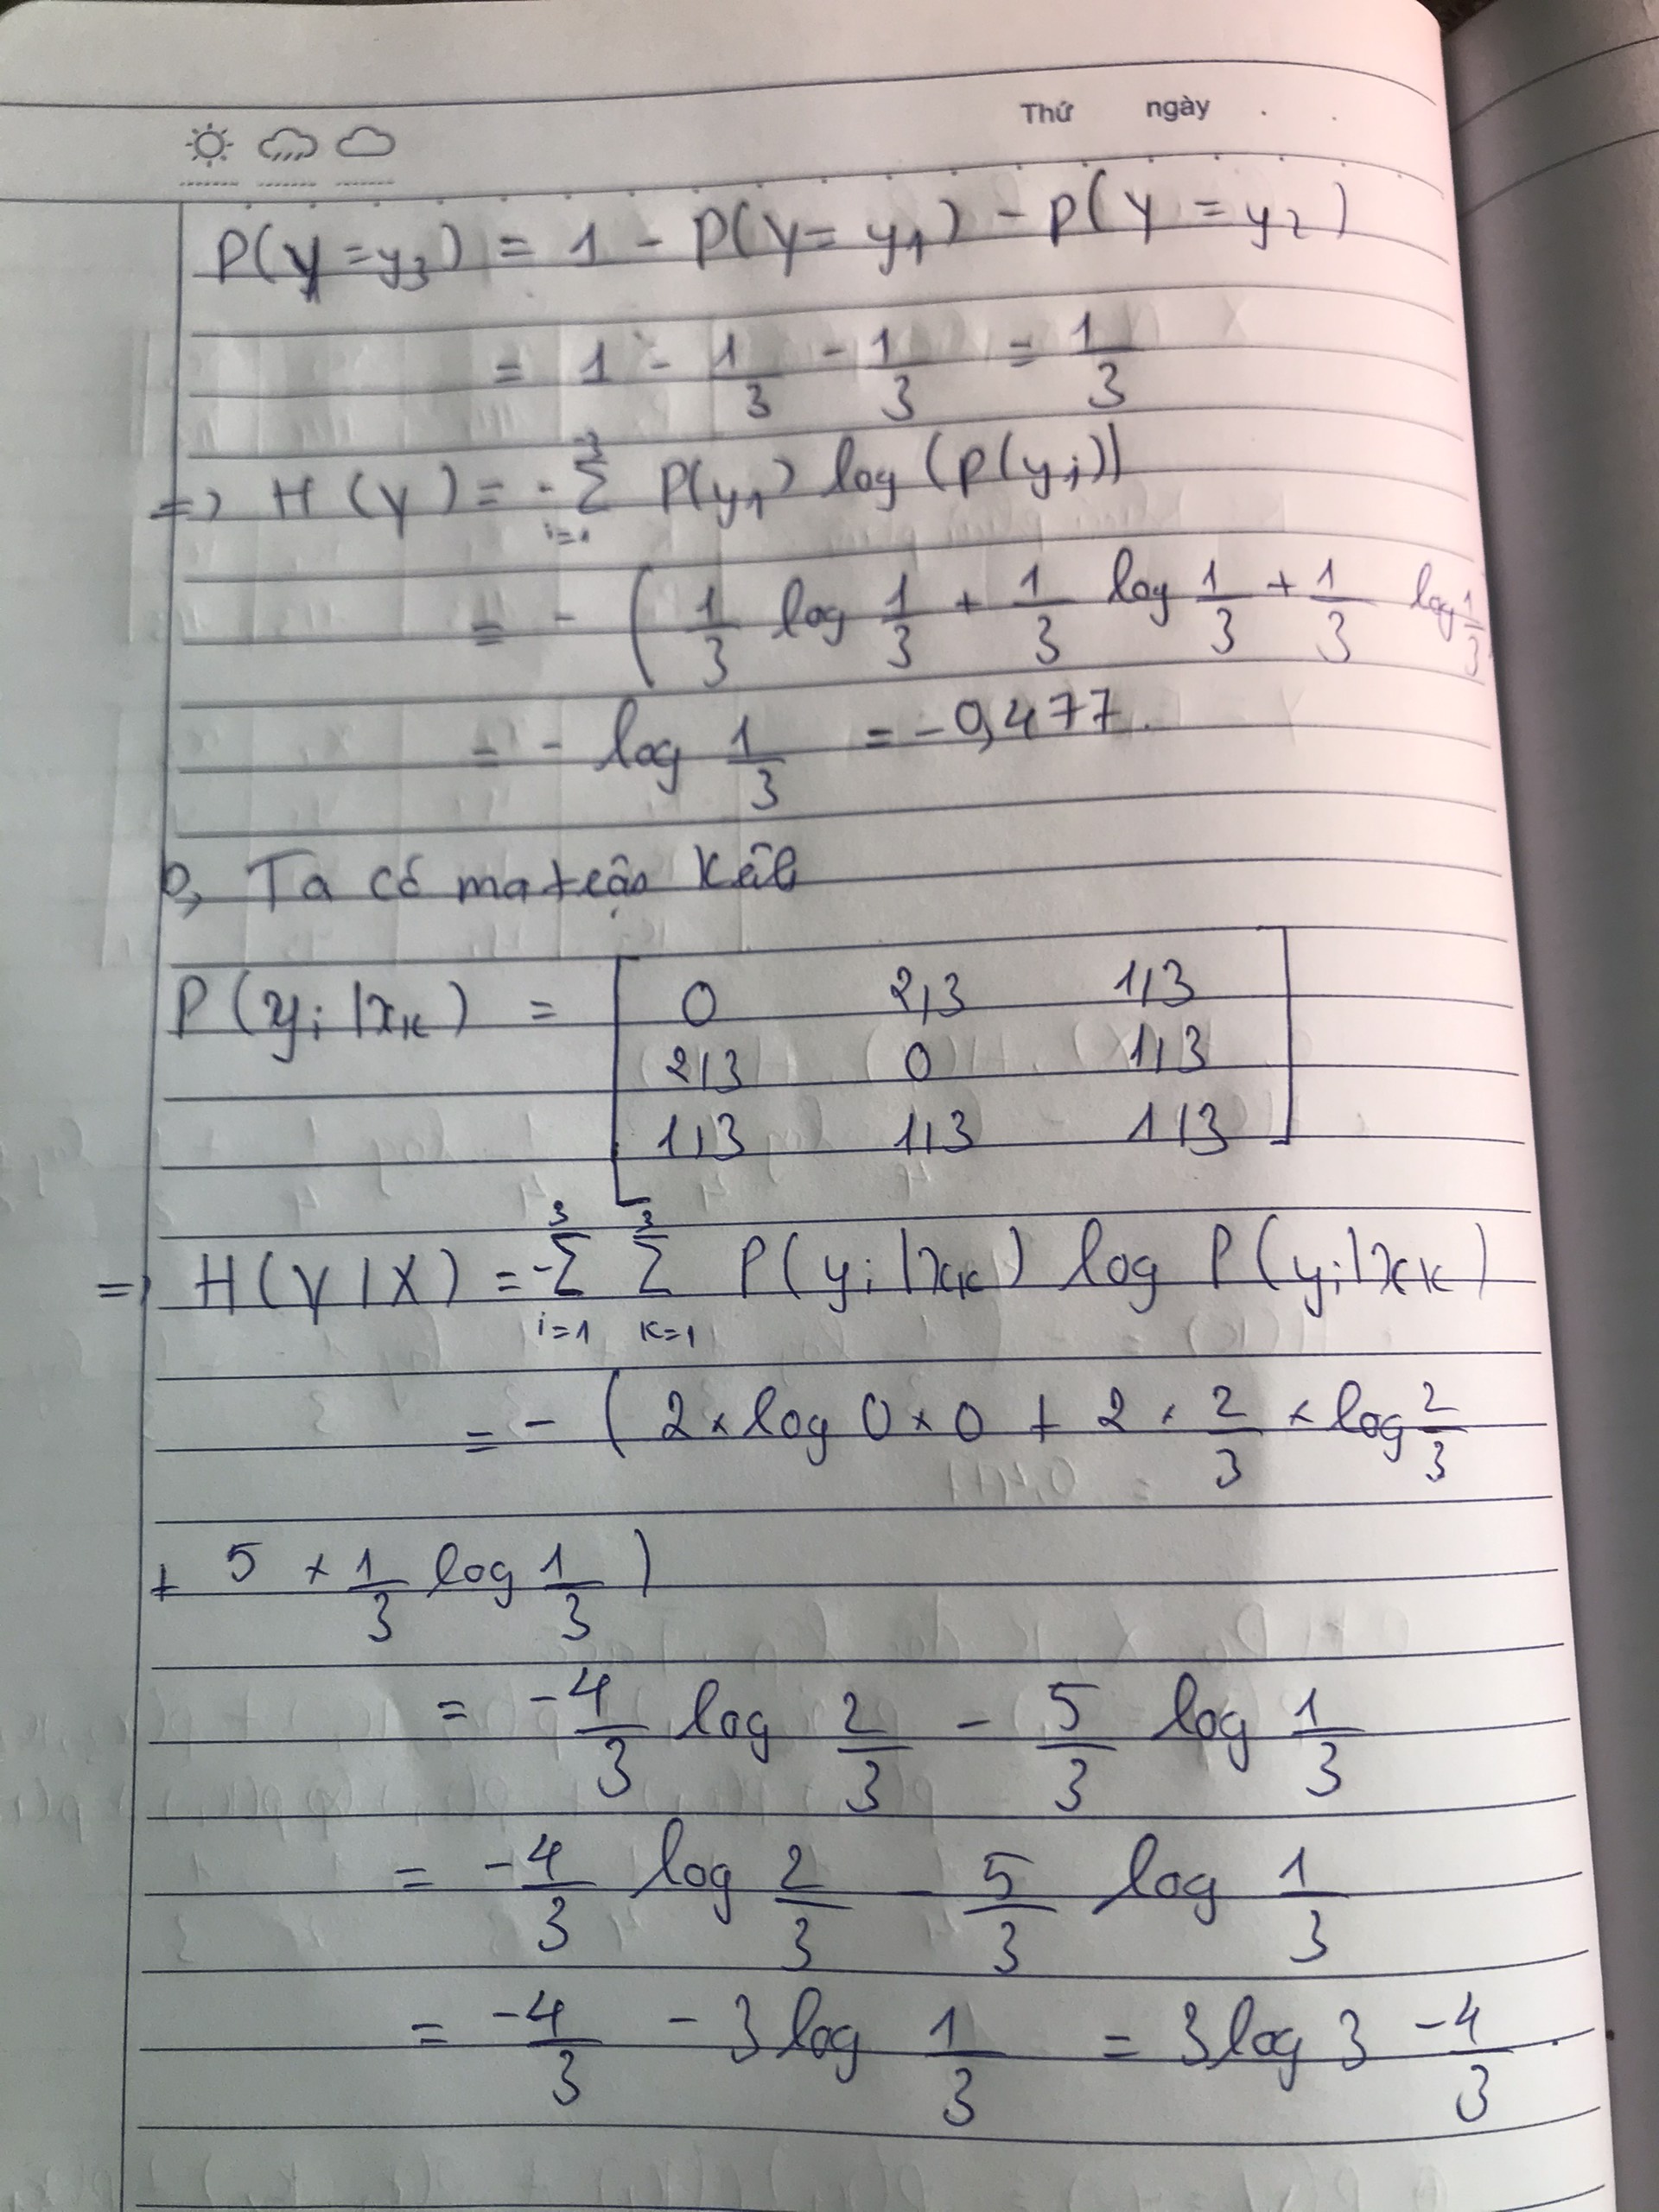 Thứ ngày
P(Y=y3) = 1 - P(Y=y1) - P(Y=y2)
= 1 - 1/3 - 1/3 = 1/3
=> H(Y) = -∑_{i=1}^{3} P(y1) log(P(yi))
= -(1/3 log 1/3 + 1/3 log 1/3 + 1/3 log 1/3
= - log 1/3 = -0,477.
b, Ta có ma trận kênh
P(yi|xk) = [
0 2/3 1/3
2/3 0 1/3
1/3 1/3 1/3
]
=> H(Y|X) = -∑_{i=1}^{3} ∑_{k=1}^{3} P(yi|xk) log P(yi|xk)
= -(2×log 0×0 + 2×2/3×log 2/3
+ 5×1/3 log 1/3)
= -4/3 log 2/3 - 5/3 log 1/3
= -4/3 log 2/3 - 5/3 log 1/3
= -4/3 - 3log 1/3 = 3log 3 -4/3.